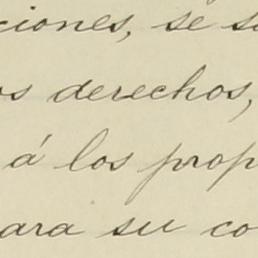 ciones, se s
os derechos,
á los prop
ara su co